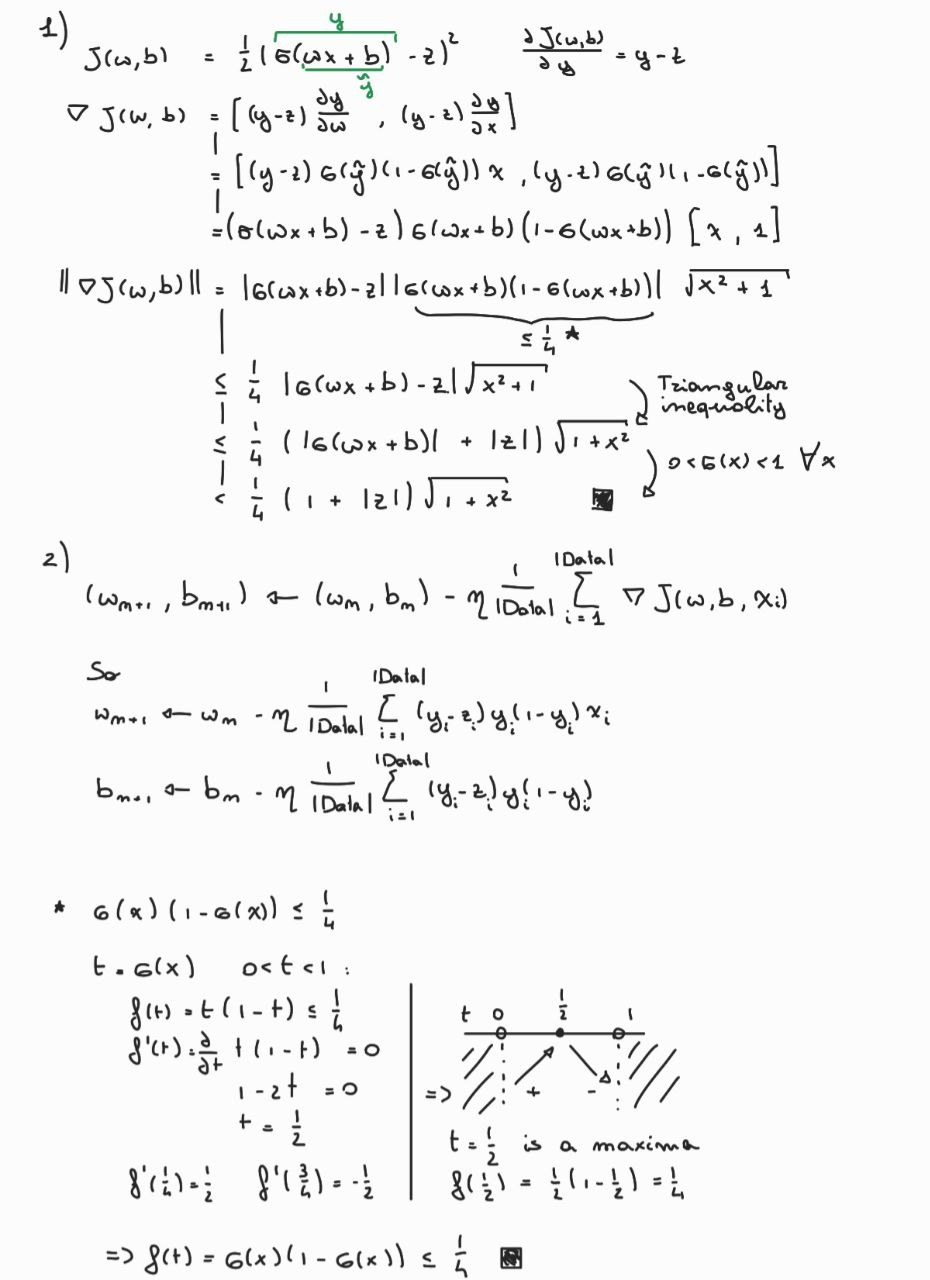 1)
y
J(w,b) = 1/2 (σ(wx + b) - z)² ∂J(w,b)/∂y = y - z
ŷ
∇ J(w, b) = [(y-z) ∂y/∂w , (y-z) ∂y/∂x]
= [(y-z) σ(ŷ)(1-σ(ŷ)) x , (y-z) σ(ŷ)(1-σ(ŷ))]
= (σ(wx + b) - z) σ(wx + b) (1-σ(wx+b)) [x , 1]
‖∇J(w,b)‖ = |σ(wx+b)-z| |σ(wx+b)(1-σ(wx+b))| √(x² + 1)
≤ 1/4 *
≤ 1/4 |σ(wx + b) - z| √(x² + 1)
Triangular
inequality
≤ 1/4 (|σ(wx + b)| + |z|) √(1 + x²)
0 < σ(x) < 1 ∀x
< 1/4 (1 + |z|) √(1 + x²) ■
2)
(w_{m+1} , b_{m+1}) ← (w_m , b_m) - η 1/|Data| Σ_{i=1}^{|Data|} ∇ J(w, b, x_i)
So
w_{m+1} ← w_m - η 1/|Data| Σ_{i=1}^{|Data|} (y_i - z_i) y_i (1 - y_i) x_i
b_{m+1} ← b_m - η 1/|Data| Σ_{i=1}^{|Data|} (y_i - z_i) y_i (1 - y_i)
* σ(x) (1 - σ(x)) ≤ 1/4
t = σ(x) 0 < t < 1 :
f(t) = t (1 - t) ≤ 1/4
f'(t) = ∂/∂t t (1 - t) = 0
1 - 2t = 0
t = 1/2
f'(1/4) = 1/2 f'(3/4) = -1/2
t 0 1/2 1
=> + -
t = 1/2 is a maxima
f(1/2) = 1/2 (1 - 1/2) = 1/4
=> f(t) = σ(x) (1 - σ(x)) ≤ 1/4 ■